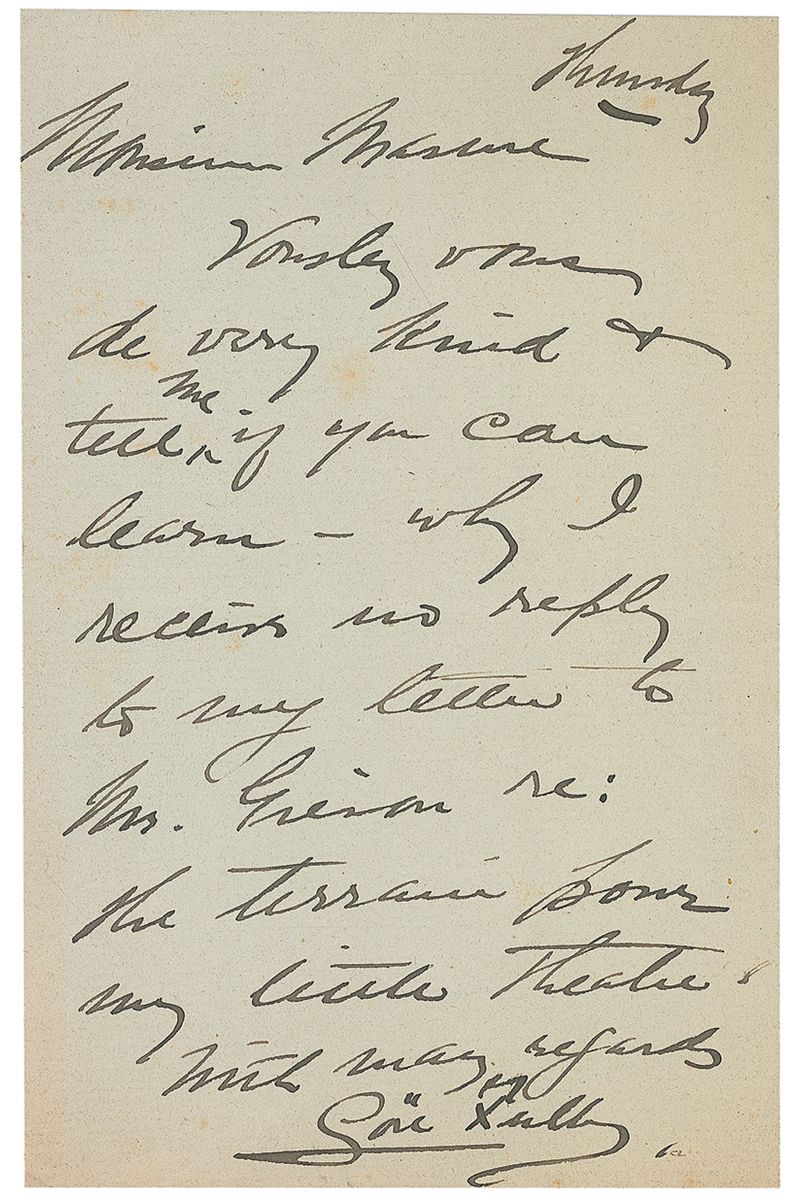 Thursday
Monsieur Masure
Vousley vous
be very kind &
tell me if you can
learn – why I
receive no reply
to my letter to
Mr. Grison re:
the terrain pour
my little Theatre
With many regards
Loïe Fuller